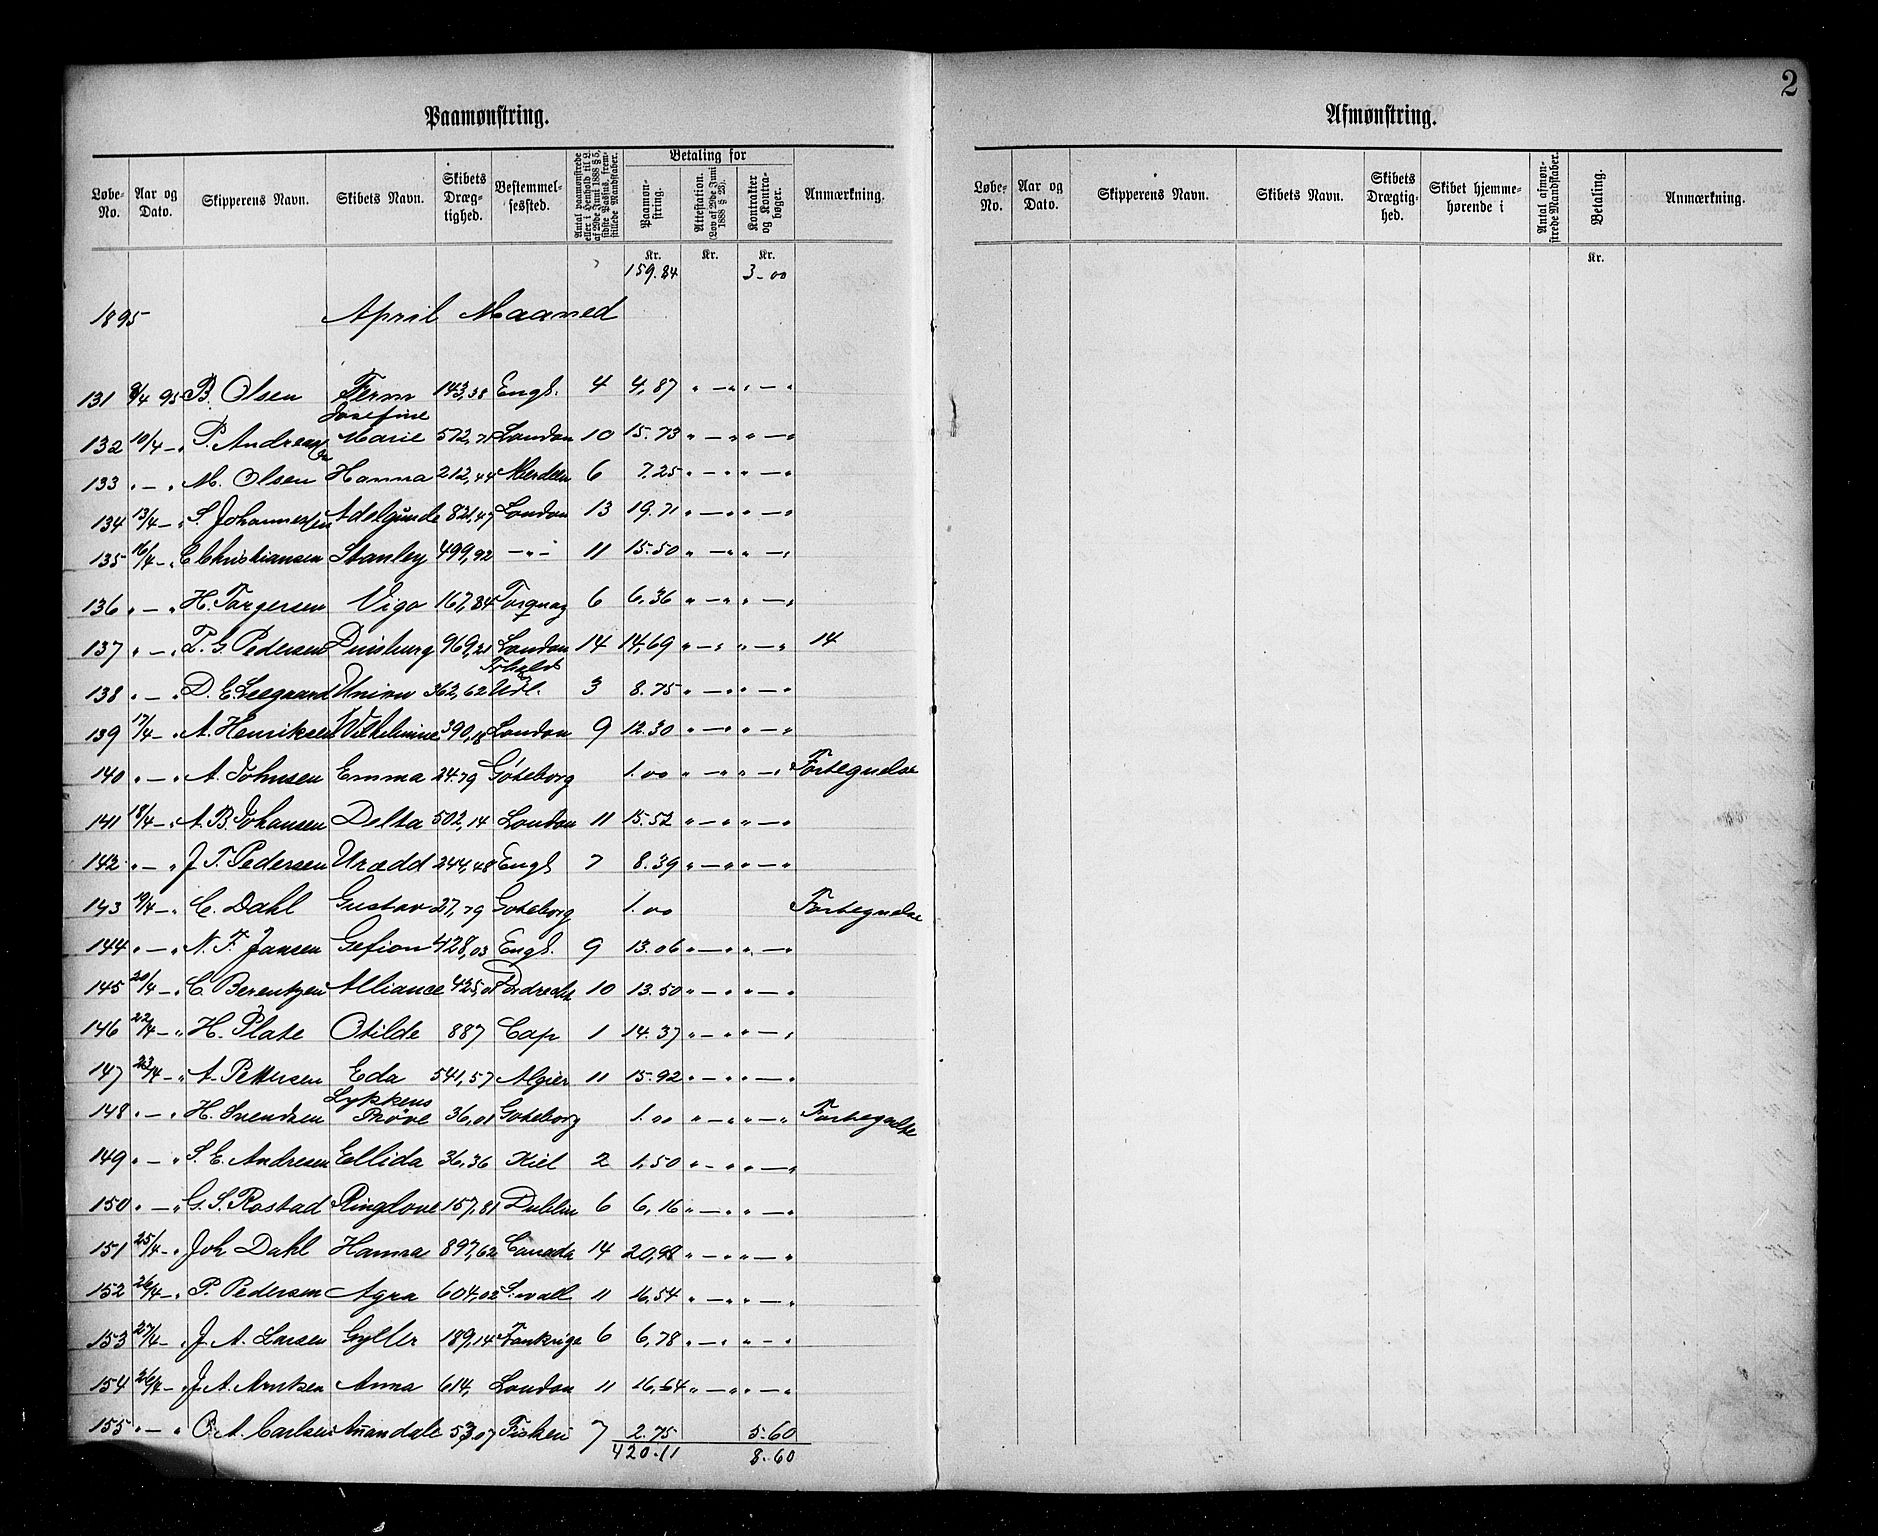 2
Paamønstring.
Løbe-No. Aar og Dato. Skipperens Navn. Skibets Navn. Skibets Dræg-tighed. Bestemmel-sessted. Antal paamønstrede eller i Henhold til L. af 29de Juni 1888 § 5, sidste Passus, frem-stillede Mandskaber. Betaling for Paamøn-string. Attestation. (Lov af 29de Juni 1888 § 23). Kontrakter og Kontra-bøger. Anmærkning.
Kr. Kr. Kr.
159.84 3-00
1895 April Maaned
131 9/4 95 B. Olsen Ferm 143,38 Engl. 4 4,87 " — " " — "
Josefine
132 10/4 — " P. Andreassen Marie 572,71 London 10 15.73 " — " " — "
133 " — " M. Olsen Hanna 212,44 Aberdeen 6 7.25 " — " " — "
134 13/4 — " S. Johannessen Adelgunde 821,47 London 13 19.71 " — " " — "
135 16/4 — " E Christiansen Stanley 499,92 — " — 11 15.50 " — " " — "
136 " — " H. Torgersen Vigo 167,84 Torquay 6 6,36 " — " " — "
137 " — " T. G. Pedersen Duisburg 969,21 London 14 14,69 " — " " — " 14
138 " — " D. E. Seegaard Union 362,62 Frhald Udl. 3 8.75 " — " " — "
139 17/4 — " A. Henriksen Wilhelmine 390,18 London 9 12.30 " — " " — "
140 " — " A. Johnsen Emma 24.79 Göteborg 1.00 " — " " — " Fortegnelse
141 18/4 — " A. B. Johansen Delta 502,14 London 11 15.52 " — " " — "
142 " — " J. T. Pedersen Urædd 244,48 Engl 7 8.39 " — " " — "
143 19/4 — " C. Dahl Gustav 27,79 Goteborg 1.00 Fortegnelse
144 " — " N. F. Jansen Gefion 428,03 Engl. 9 13.06 " — " " — "
145 20/4 — " C. Berentzen Alliance 425,01 Dordrecht 10 13.50 " — " " — "
146 22/4 — " H. Plate Otilde 887 Cap 1 14.37 " — " " — "
147 23/4 — " A. Pettersen Eda 541,57 Algier 11 15.92 " — " " — "
Lykkens
148 " — " H. Svendsen Prøve 36,01 Goteborg 1.00 " — " " — " Fortegnelse
149 " — " S. E. Andresen Ellida 36,36 Kiel 2 1,50 " — " " — "
150 " — " G. S. Rostad Ringdove 157,81 Dublin 6 6,16 " — " " — "
151 25/4 — " Joh Dahl Hanna 897,62 Canada 14 20,98 " — " " — "
152 26/4 — " P. Pedersen Agra 604,02 S:wall 11 16,54 " — " " — "
153 27/4 — " J. A. Larsen Gyller 189,14 Frankrige 6 6,78 " — " " — "
154 26/4 — " J. A. Arntzen Anna 614, London 11 16,64 " — " " — "
155 " — " O. A. Carlsen Anandale 53,07 Fiskeri 7 2.75 5.60
420.11 8.60
Afmønstring.
Løbe-No. Aar og Dato. Skipperens Navn. Skibets Navn. Skibets Drægtig-hed. Skibet hjemme-hørende i Antal afmøn-strede Mandskaber. Betaling. Anmærkning.
Kr.